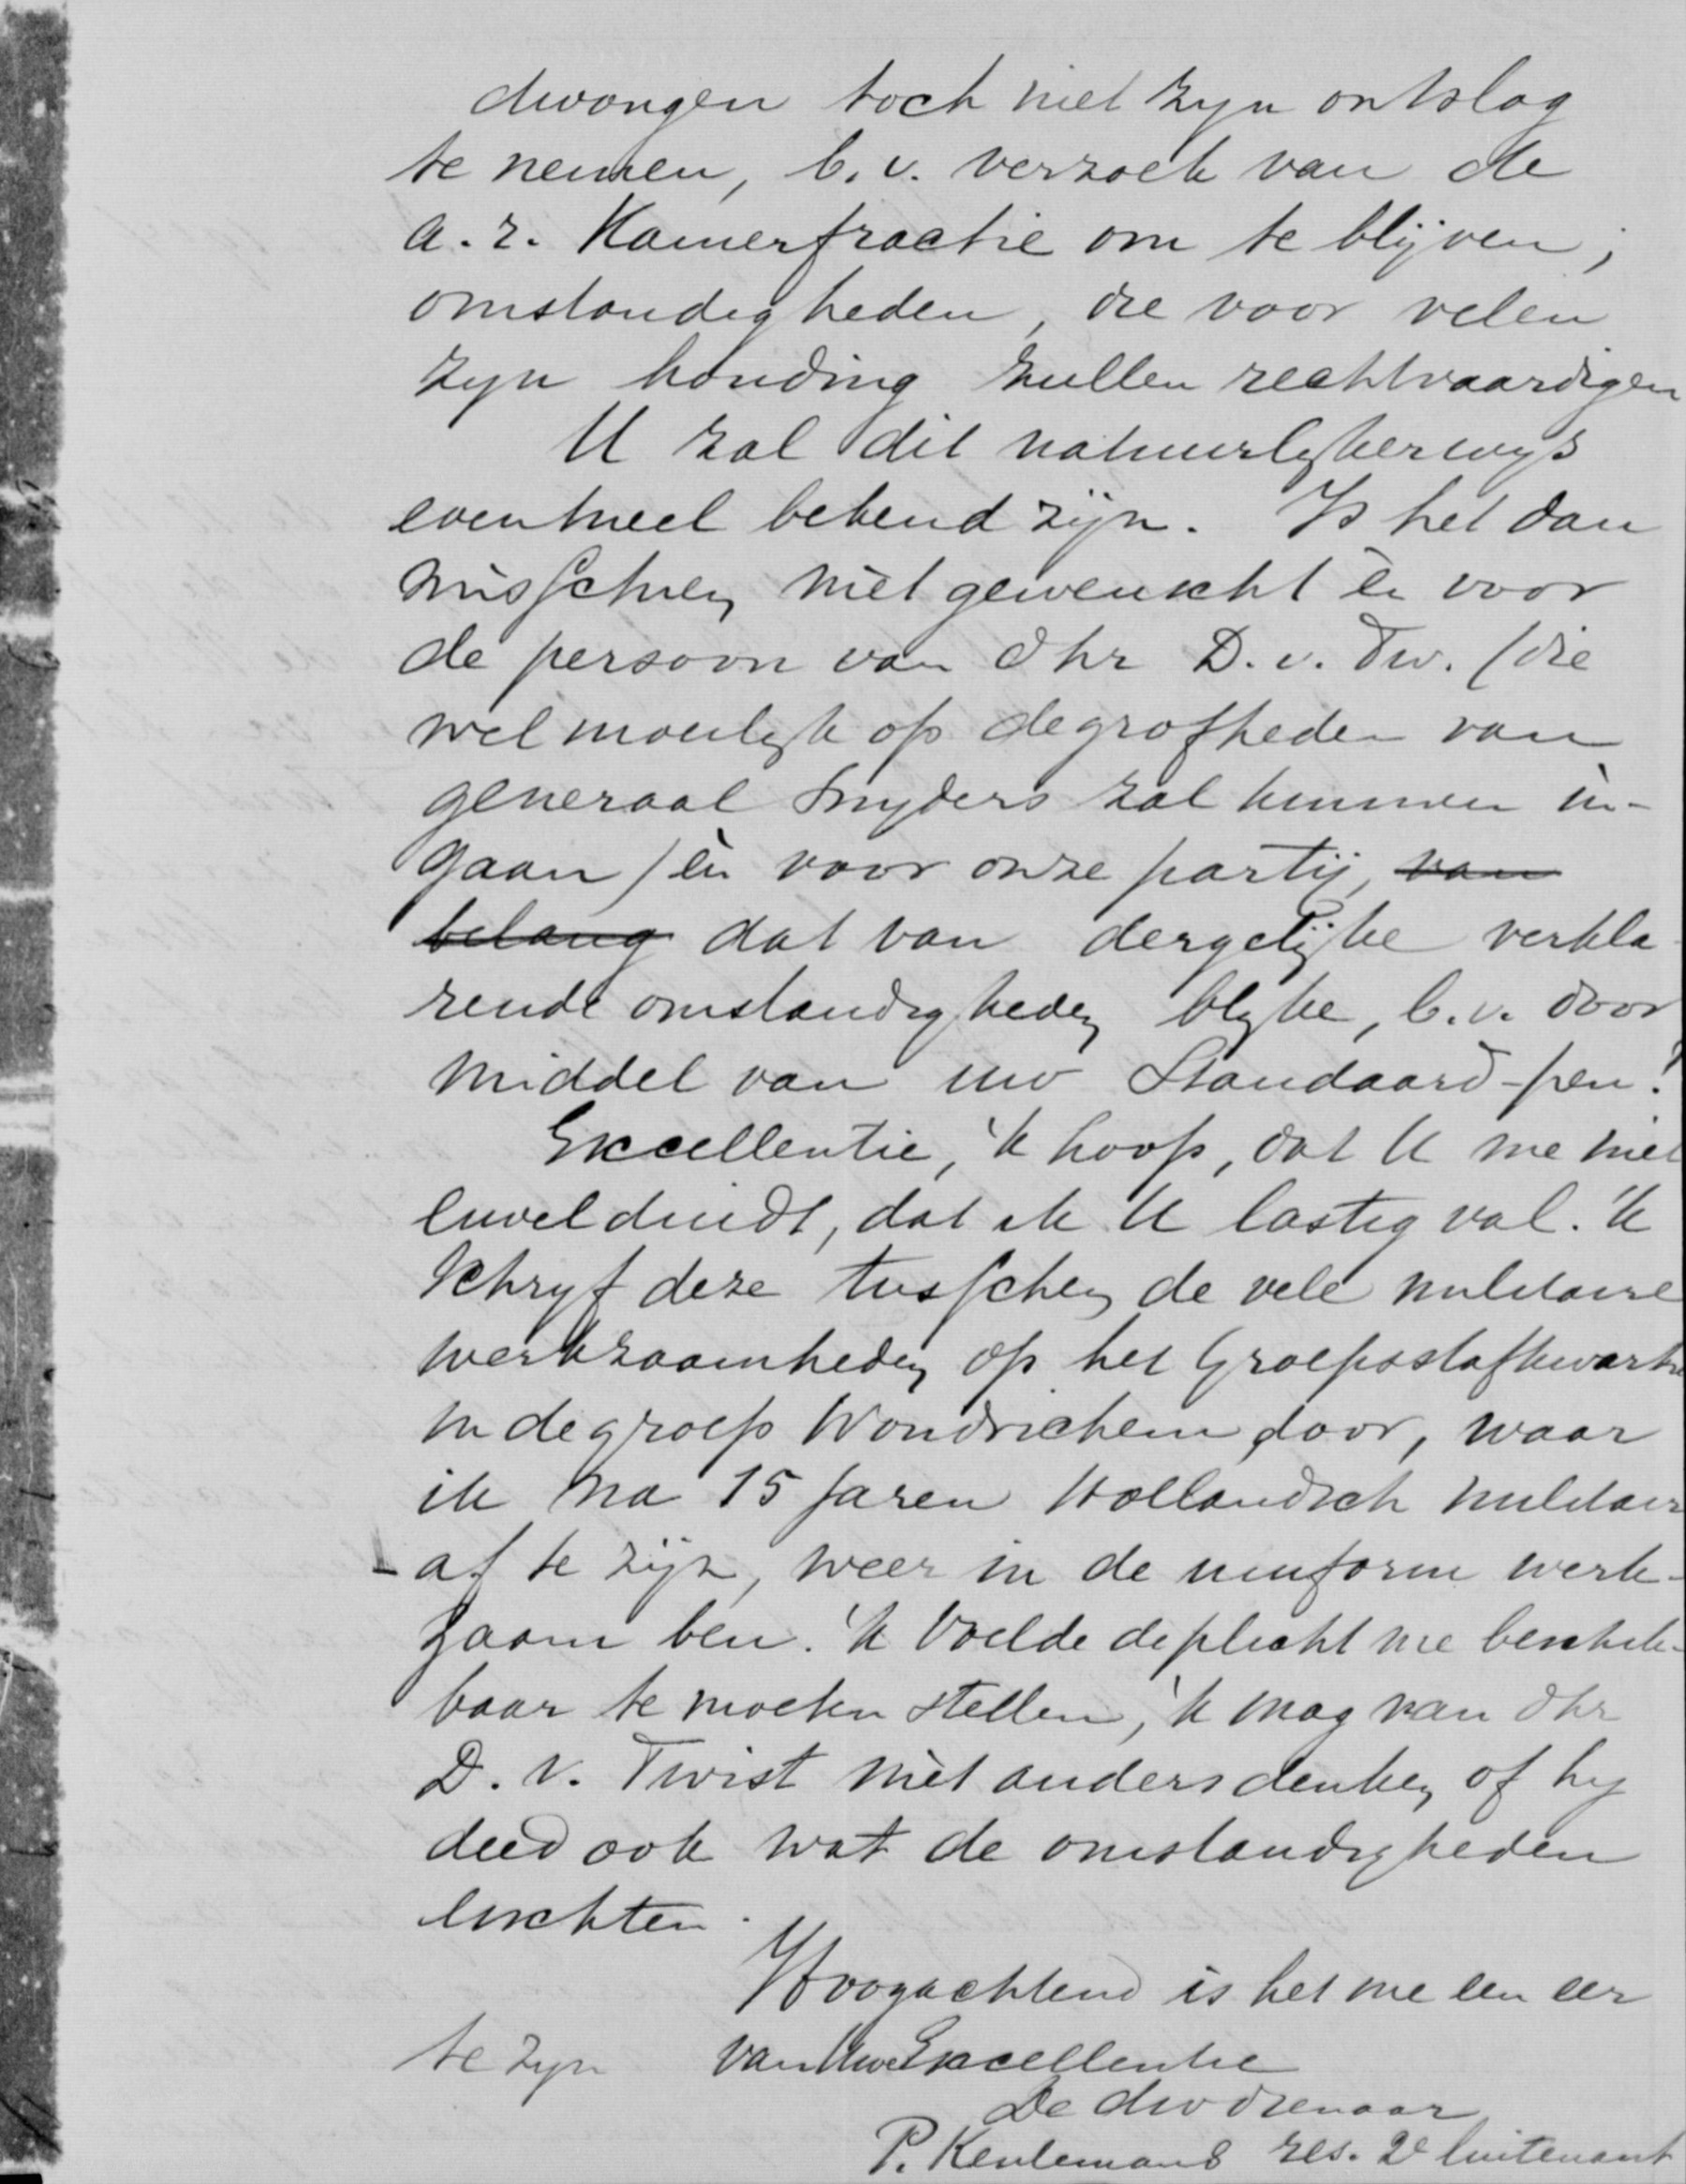 dwongen toch niet zyn ontslag
te nemen, b.v. verzoek van de
a.r. Kamerfractie om te blijven;
omstandigheden, die voor velen
zyn houding zullen rechtvaardigen
U zal dit natuurlykerwys
eventueel bekend zijn. Is het dan
misschien niet gewenscht èn voor
de persoon van dhr D.v.Tw. (die
wel moeilyk op de grofheden van
generaal Snyders zal kunnen in-
gaan) èn voor onze partij, van
belang dat van dergelijke verkla-
rende omstandigheden blyke, b.v. door
middel van uw Standaard-pen?
Excellentie, 'k hoop, dat U me niet
euvel duidt, dat ik U lastig val. 'k
schryf deze tusschen de vele militaire
werkzaamheden op het Groepsstafkwartier
in de groep Woudrichem door, waar
ik na 15 jaren Hollandsch militair
af te zijn, weer in de uniform werk-
zaam ben. 'k Voelde de plicht me beschik-
baar te moeten stellen, 'k mag van dhr
D. v. Twist niet anders denken of hy
deed ook wat de omstandigheden
eischten.
Hoogachtend is het me een eer
te zyn van Uwe Excellentie
De dw dienaar
P. Keulemans res. 2e luitenant